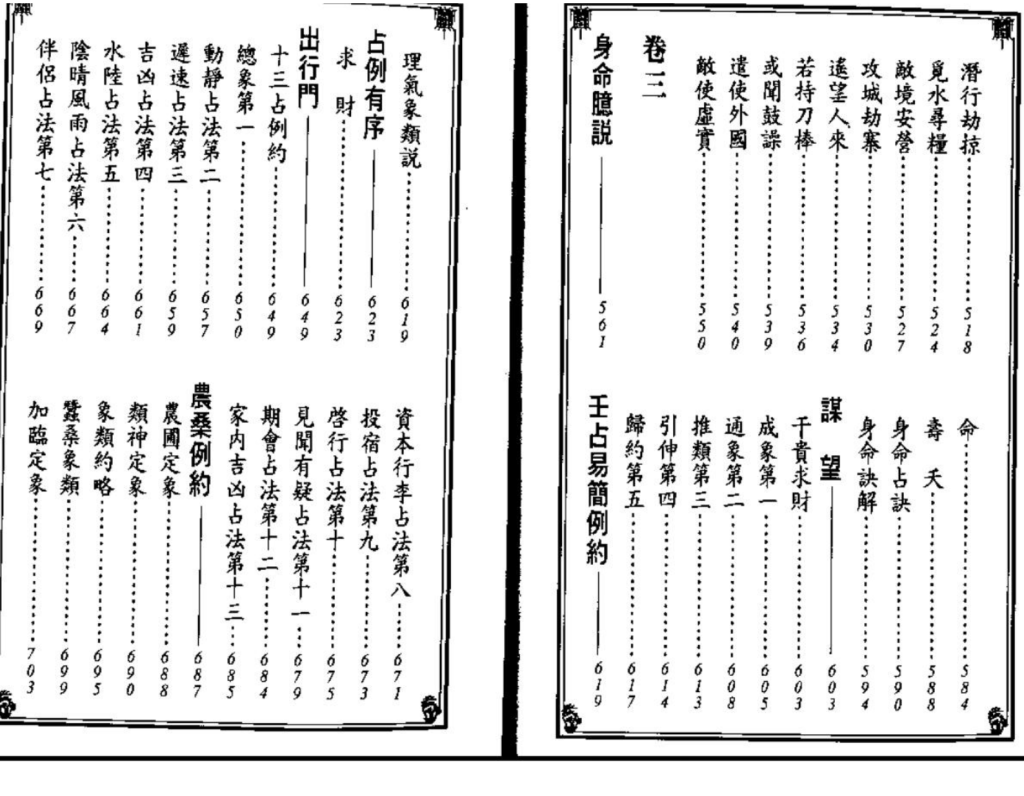 潛行劫掠……518
覓水尋糧……524
敵境安營……527
攻城劫寨……530
遙望人來……534
若持刀棒……536
或聞鼓譟……539
遣使外國……540
敵使虛實……550
卷三
身命臆説——561
命……584
壽　夭……588
身命占訣……590
身命訣解……594
謀　望——603
干貴求財……603
成象第一……605
通象第二……608
推類第三……613
引伸第四……614
歸約第五……617
壬占易簡例約——619
理氣象類説……619
占例有序——623
求　財……623
出行門——649
十三占例約……649
總象第一……650
動靜占法第二……657
遲速占法第三……659
吉凶占法第四……661
水陸占法第五……664
陰晴風雨占法第六……667
伴侶占法第七……669
資本行李占法第八……671
投宿占法第九……673
啓行占法第十……675
見聞有疑占法第十一……679
期會占法第十二……684
家内吉凶占法第十三……685
農桑例約——687
農圃定象……688
類神定象……690
象類約略……695
蠶桑象類……699
加臨定象……703